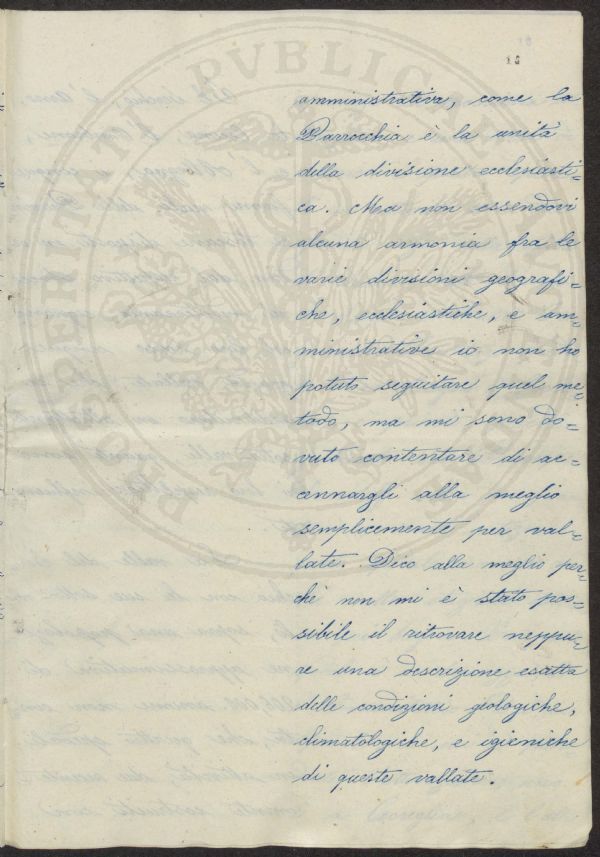 18
amministrativa, come la
Parrocchia è la unità
della divisione ecclesiasti=
ca. Ma non essendovi
alcuna armonia fra le
varie divisioni geografi=
che, ecclesiastiche, e am=
ministrative io non ho
potuto seguitare quel me=
todo, ma mi sono do=
vuto contentare di ac=
cennargli alla meglio
semplicemente per val=
late. Dico alla meglio per=
chè non mi è stato pos=
sibile il ritrovare neppu=
re una descrizione esatta
delle condizioni geologiche,
climatologiche, e igieniche
di queste vallate.